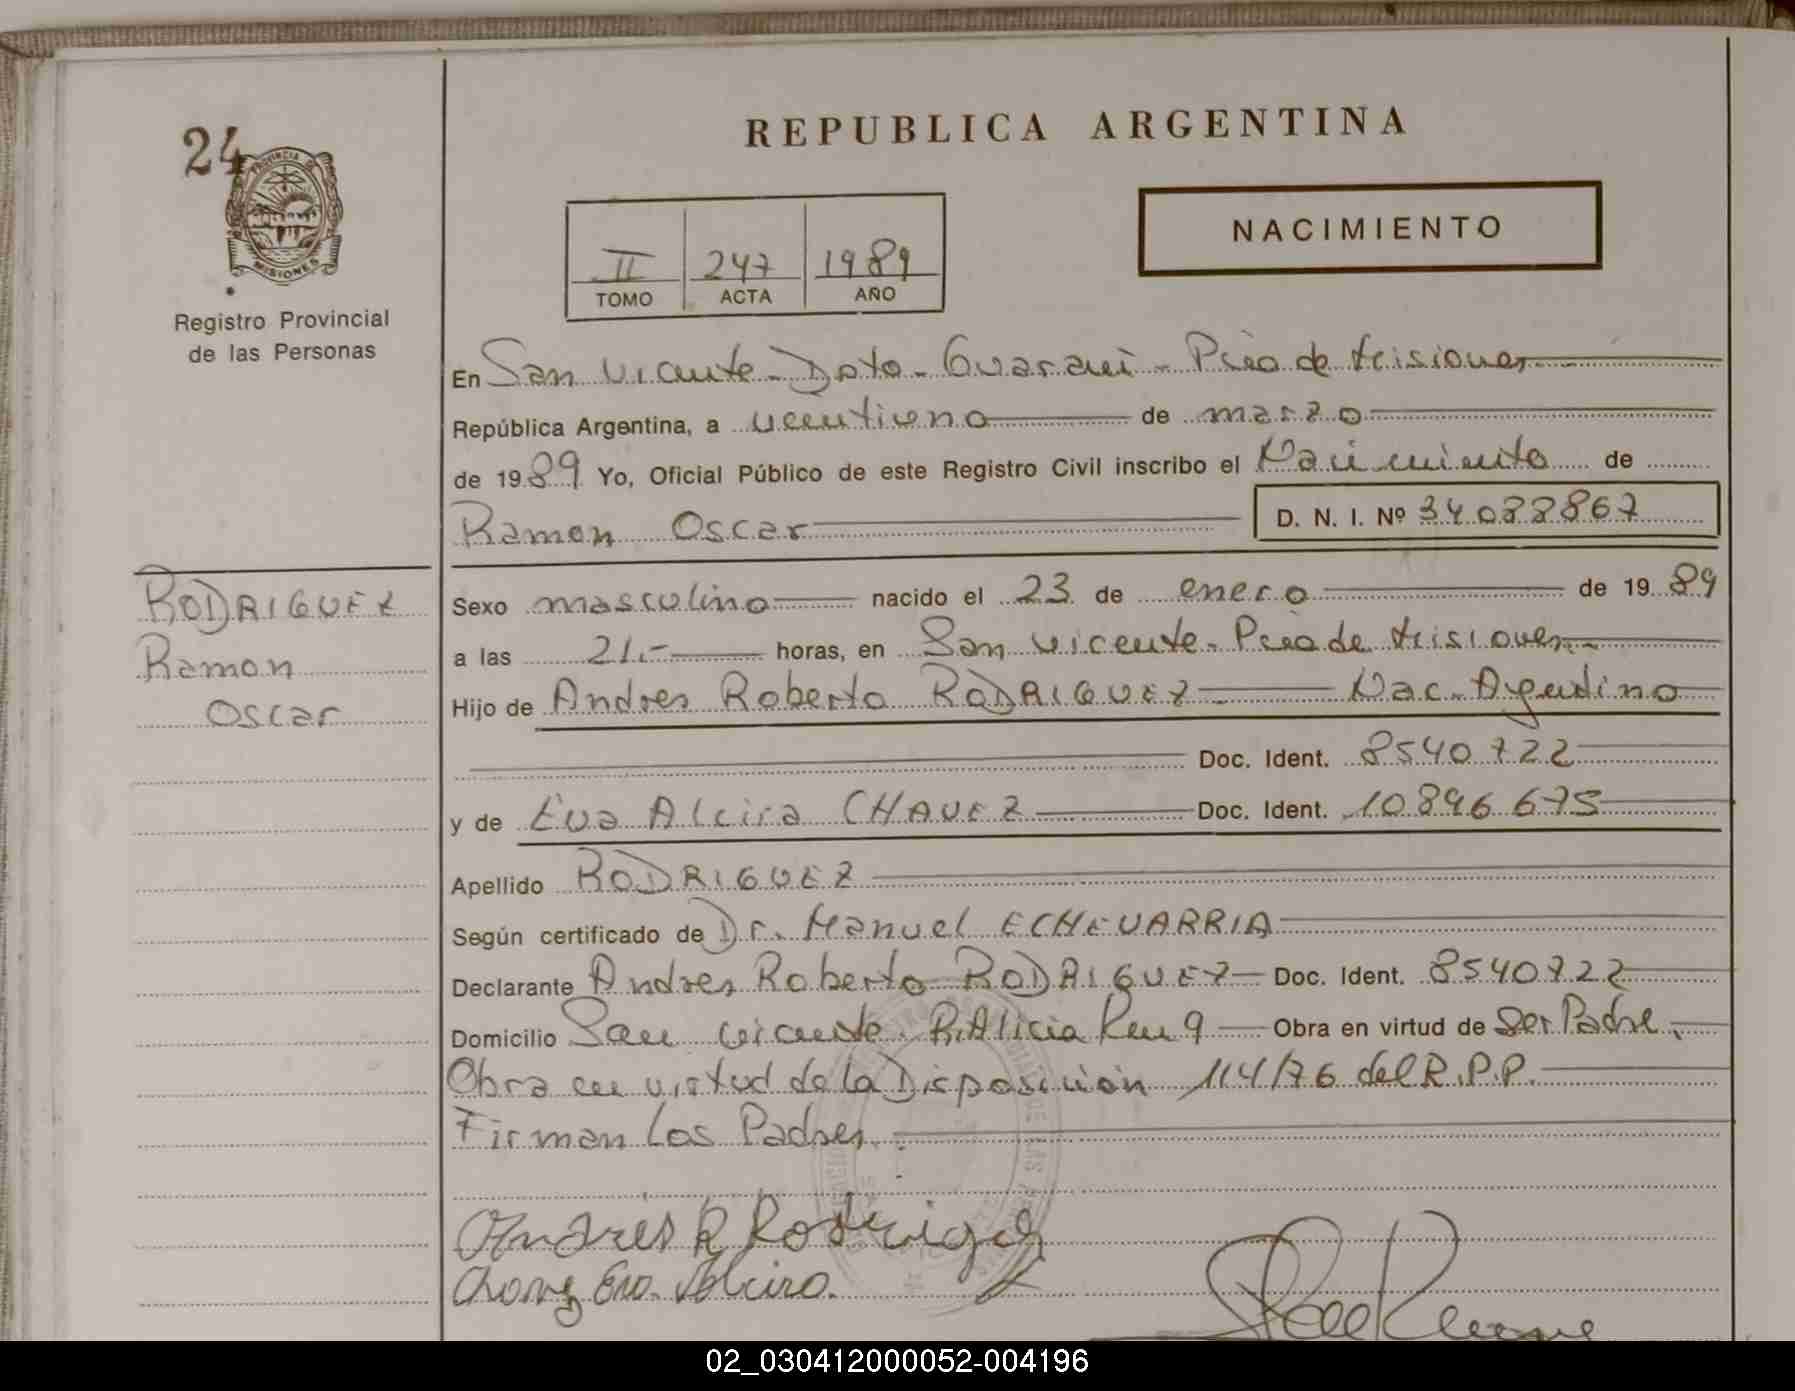 24
PROVINCIA DE
MISIONES
Registro Provincial
de las Personas
REPUBLICA ARGENTINA
II 247 1989
TOMO ACTA AÑO
NACIMIENTO
En San Vicente - Dpto - Guarani - Pcia de Misiones
República Argentina, a veentiuno de marzo
de 1989 Yo, Oficial Público de este Registro Civil inscribo el Nacimiento de
Ramon Oscar D. N. I. Nº 34088867
RODRIGUEZ
Ramon
Oscar
Sexo masculino nacido el 23 de enero de 1989
a las 21.- horas, en San Vicente - Pcia de Misiones.-
Hijo de Andres Roberto RODRIGUEZ Nac. Argentino
Doc. Ident. 8540722
y de Eva Alcira CHAVEZ Doc. Ident. 10896675
Apellido RODRIGUEZ
Según certificado de Dr. Manuel ECHEVARRIA
Declarante Andres Roberto RODRIGUEZ Doc. Ident. 8540722
Domicilio San Vicente. P. Alicia Km 9 Obra en virtud de Ser Padre.
Obra en virtud de la Disposición 114/76 del R.P.P.
Firman Los Padres.
Andrés R Rodrigez
Eva Alcira.
02_030412000052-004196